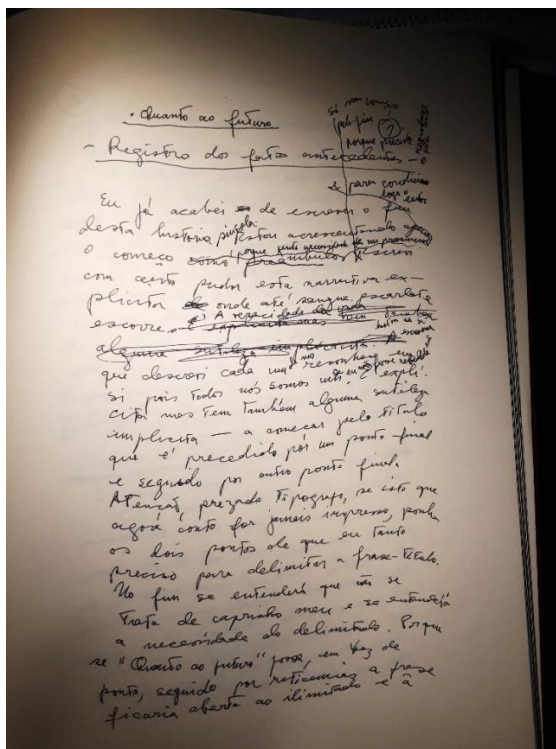 . Quanto ao futuro.
- Registro dos fatos antecedentes -
só
pelo fim
porque preciso
?
e para condicionar
logo o leitor
Eu já acabei de escrever o fim
desta história e estou acrescentando
o começo como preâmbulo. Escrevo
com certo pudor esta narrativa ex-
plícita onde até sangue escarlate
escorre. A
alguma sutileza implícita. A
que descrevi cada um se reconheça em
si pois todos nós somos um. É explí-
cita mas tem também alguma sutileza
implícita — a começar pelo título
que é precedido por um ponto final
e seguido por outro ponto final.
Atenção, prezado tipógrafo, se isto que
agora conto for jamais impresso, ponha
os dois pontos de que eu tanto
preciso para delimitar a frase-título.
No fim se entenderá que não se
trata de capricho meu e se entenderá
a necessidade do delimitado. Porque
se "Quanto ao futuro" fosse, em vez de
ponto, seguido por reticências a frase
ficaria aberta ao ilimitado e à